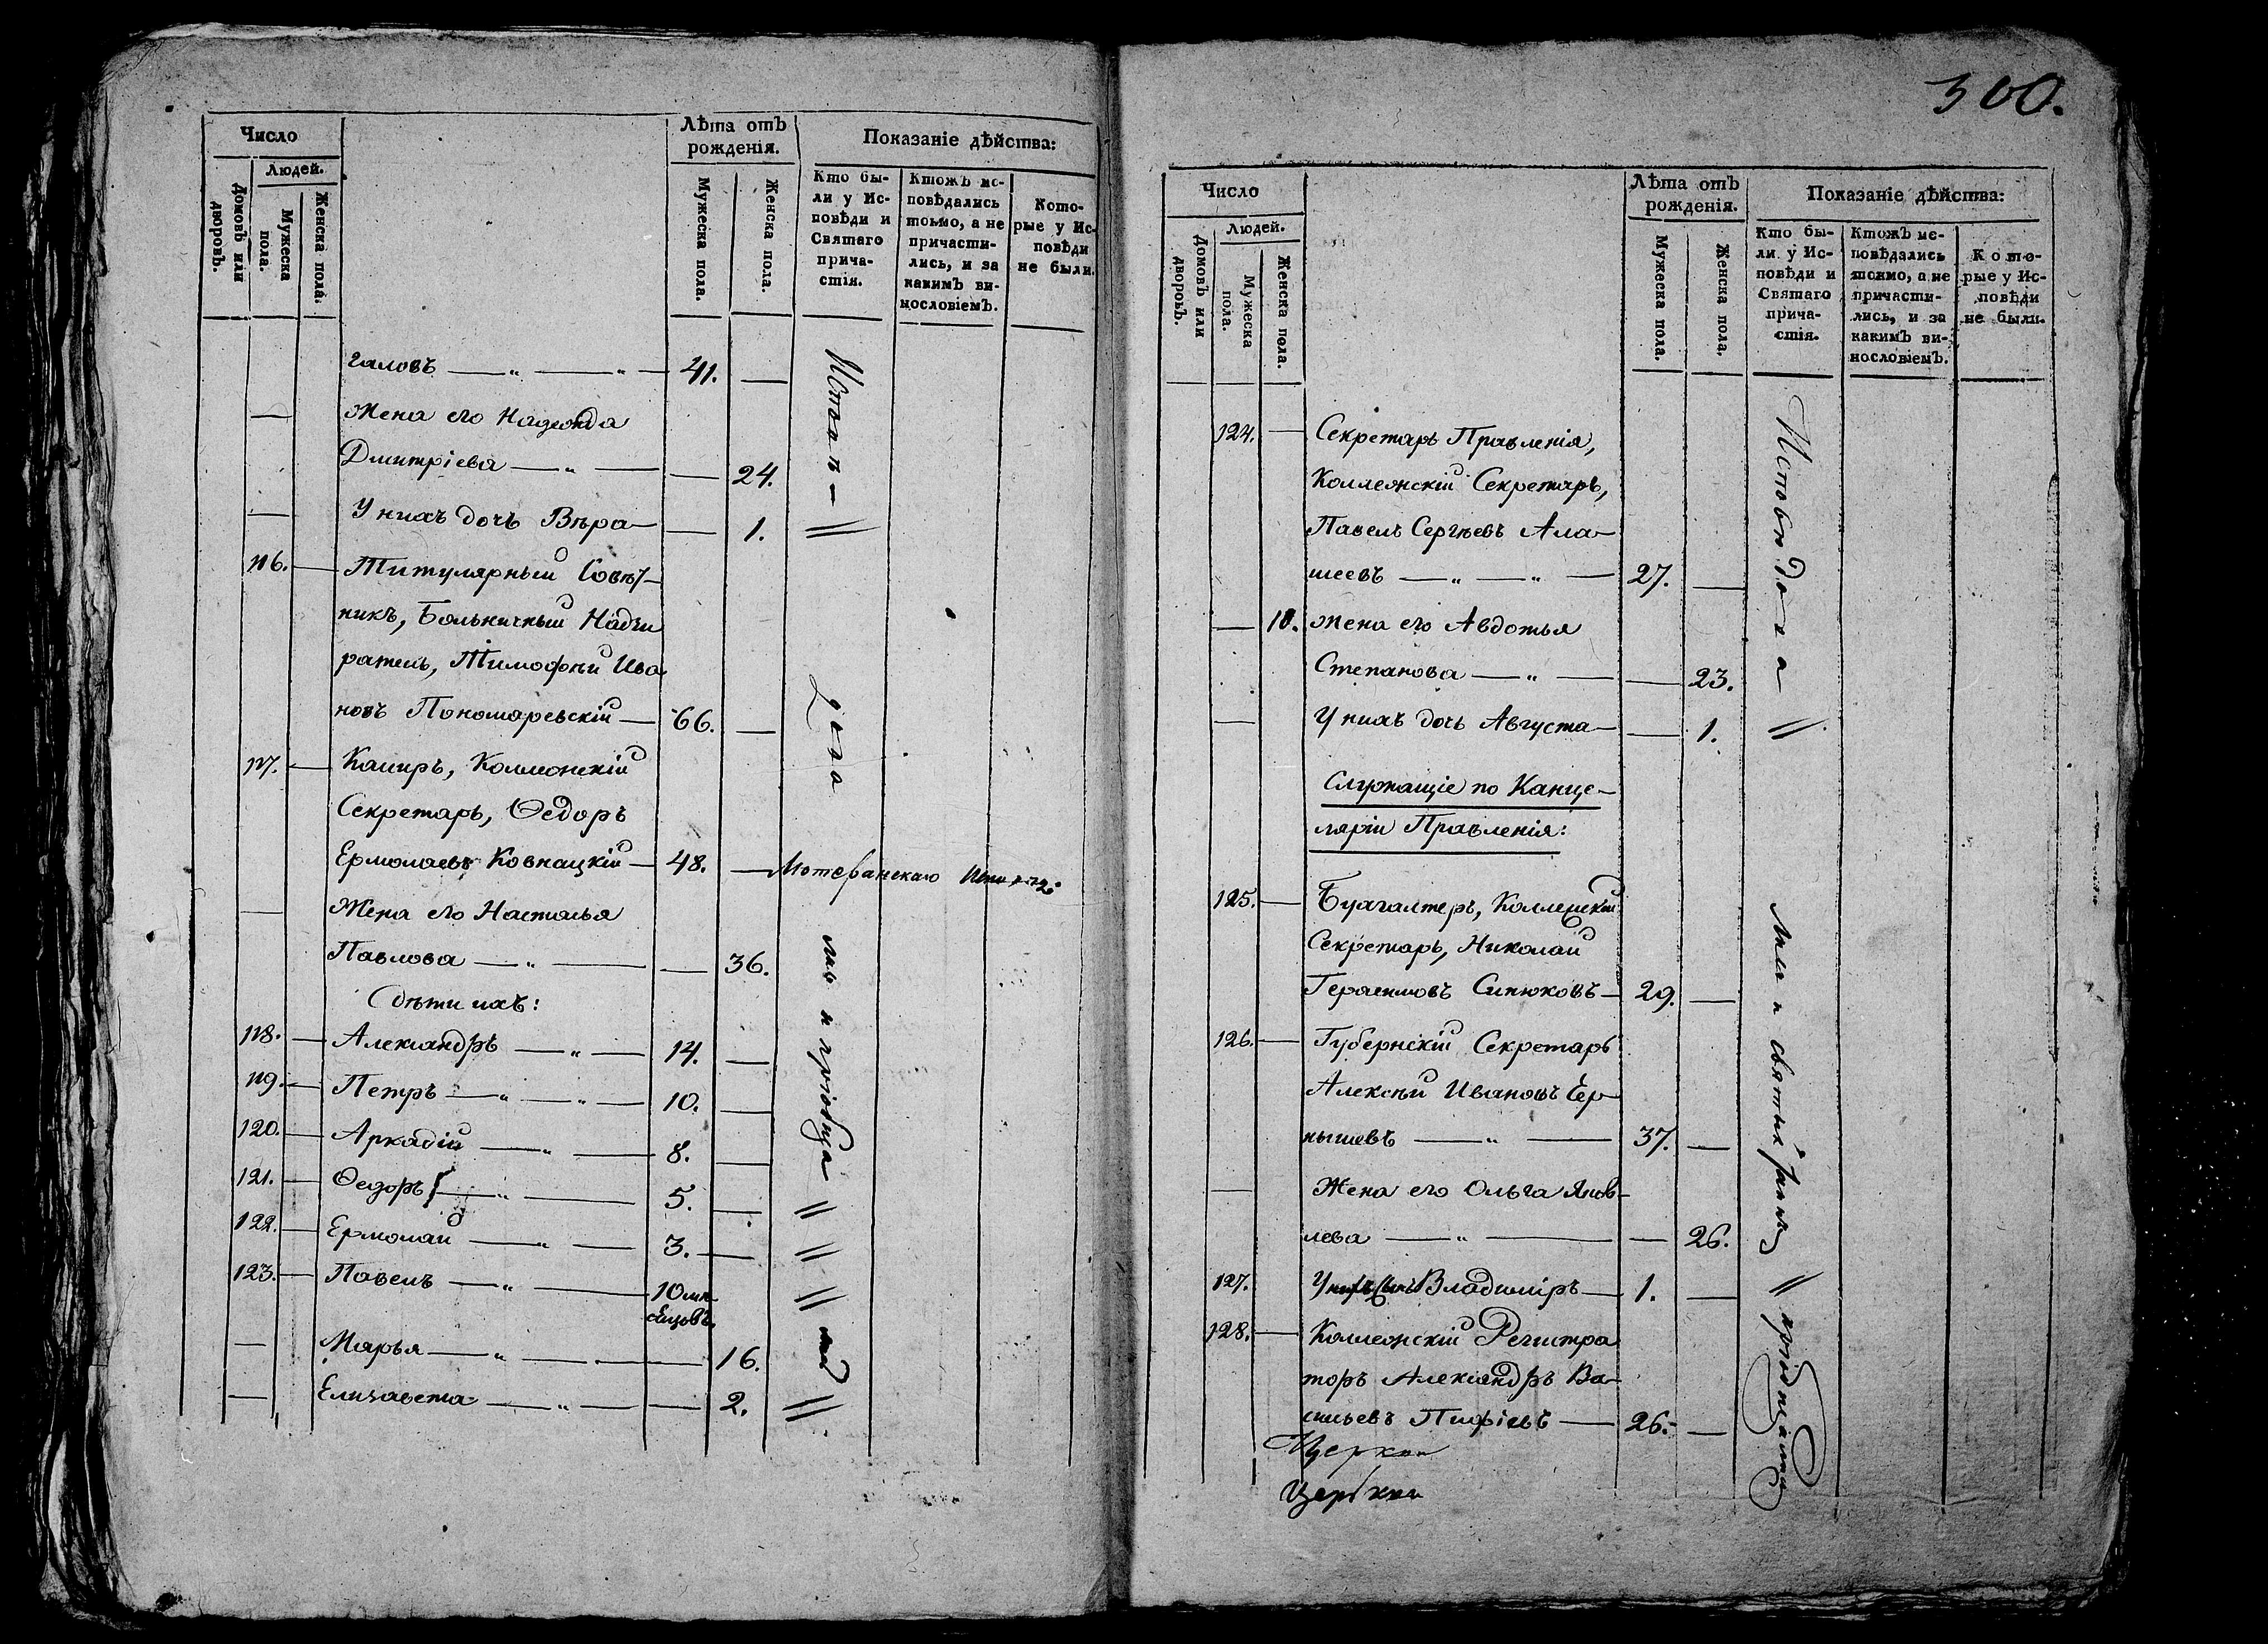 Число
Людей.
Домовъ или дворовъ.
Мужеска пола.
Женска пола.
Лѣта отъ рожденія.
Мужеска пола.
Женска пола.
Показаніе дѣйства:
Кто бы-
ли у Ис-
повѣди и
Святаго
прича-
стія.
Ктожъ ис-
повѣдались
токмо, а не
причасти-
лись, и за
какимъ ви-
нословіемъ.
Кото-
рые у Ис-
повѣди
не были.
галовъ — „ — „ — 41. —
— Жена его Надежда
Дмитріева — „ — — 24.
— У нихъ дочь Вѣра — — 1.
116. — Титулярный Совѣт-
никъ, Больничный Надзи
ратель, Тимофѣй Ива
новъ Пономаревскій — 66. —
117. — Касиръ, Коллежскій
Секретарь, Ѳедоръ
Ермолаевъ Ковнацкій — 48. —
— Жена его Наталья
Павлова — „ — — 36.
Дѣти ихъ:
118. — Александръ — „ — 14. —
119. — Петръ — „ — „ — 10. —
120. — Аркадій — „ — 8. —
121. — Ѳедоръ — „ — 5. —
122. — Ермолай — „ — 3. —
123. — Павелъ — „ — 10 мѣ-
сяцовъ.
— Марья — „ — — 16.
— Елизавета — „ — — 2.
300.
Число
Людей.
Домовъ или дворовъ.
Мужеска пола.
Женска пола.
Лѣта отъ рожденія.
Мужеска пола.
Женска пола.
Показаніе дѣйства:
Кто бы-
ли у Ис-
повѣди и
Святаго
прича-
стія.
Ктожъ ис-
повѣдались
токмо, а не
причасти-
лись, и за
какимъ ви-
нословіемъ.
Кото-
рые у Ис-
повѣди
не были.
124. — Секретарь Правленія,
Коллежскій Секретарь,
Павелъ Сергѣевъ Ала-
шеевъ — „ — „ — 27. —
— 10. Жена его Авдотья
Степанова — „ — — 23.
— У нихъ дочь Августа — — 1.
Служащіе по Канце-
ляріи Правленія:
125. — Бухгалтеръ, Коллежскій
Секретарь, Николай
Герасимовъ Синюковъ — 29. —
126. — Губернскій Секретарь
Алексѣй Ивановъ Чер-
нышевъ — „ — 37. —
— Жена его Ольга Яков-
лева — „ — — 26.
127. У нихъ сынъ Владиміръ — 1. —
128. — Коллежскій Регистра
торъ Александръ Ва-
сильевъ — 26. —
Церкви
Церкви